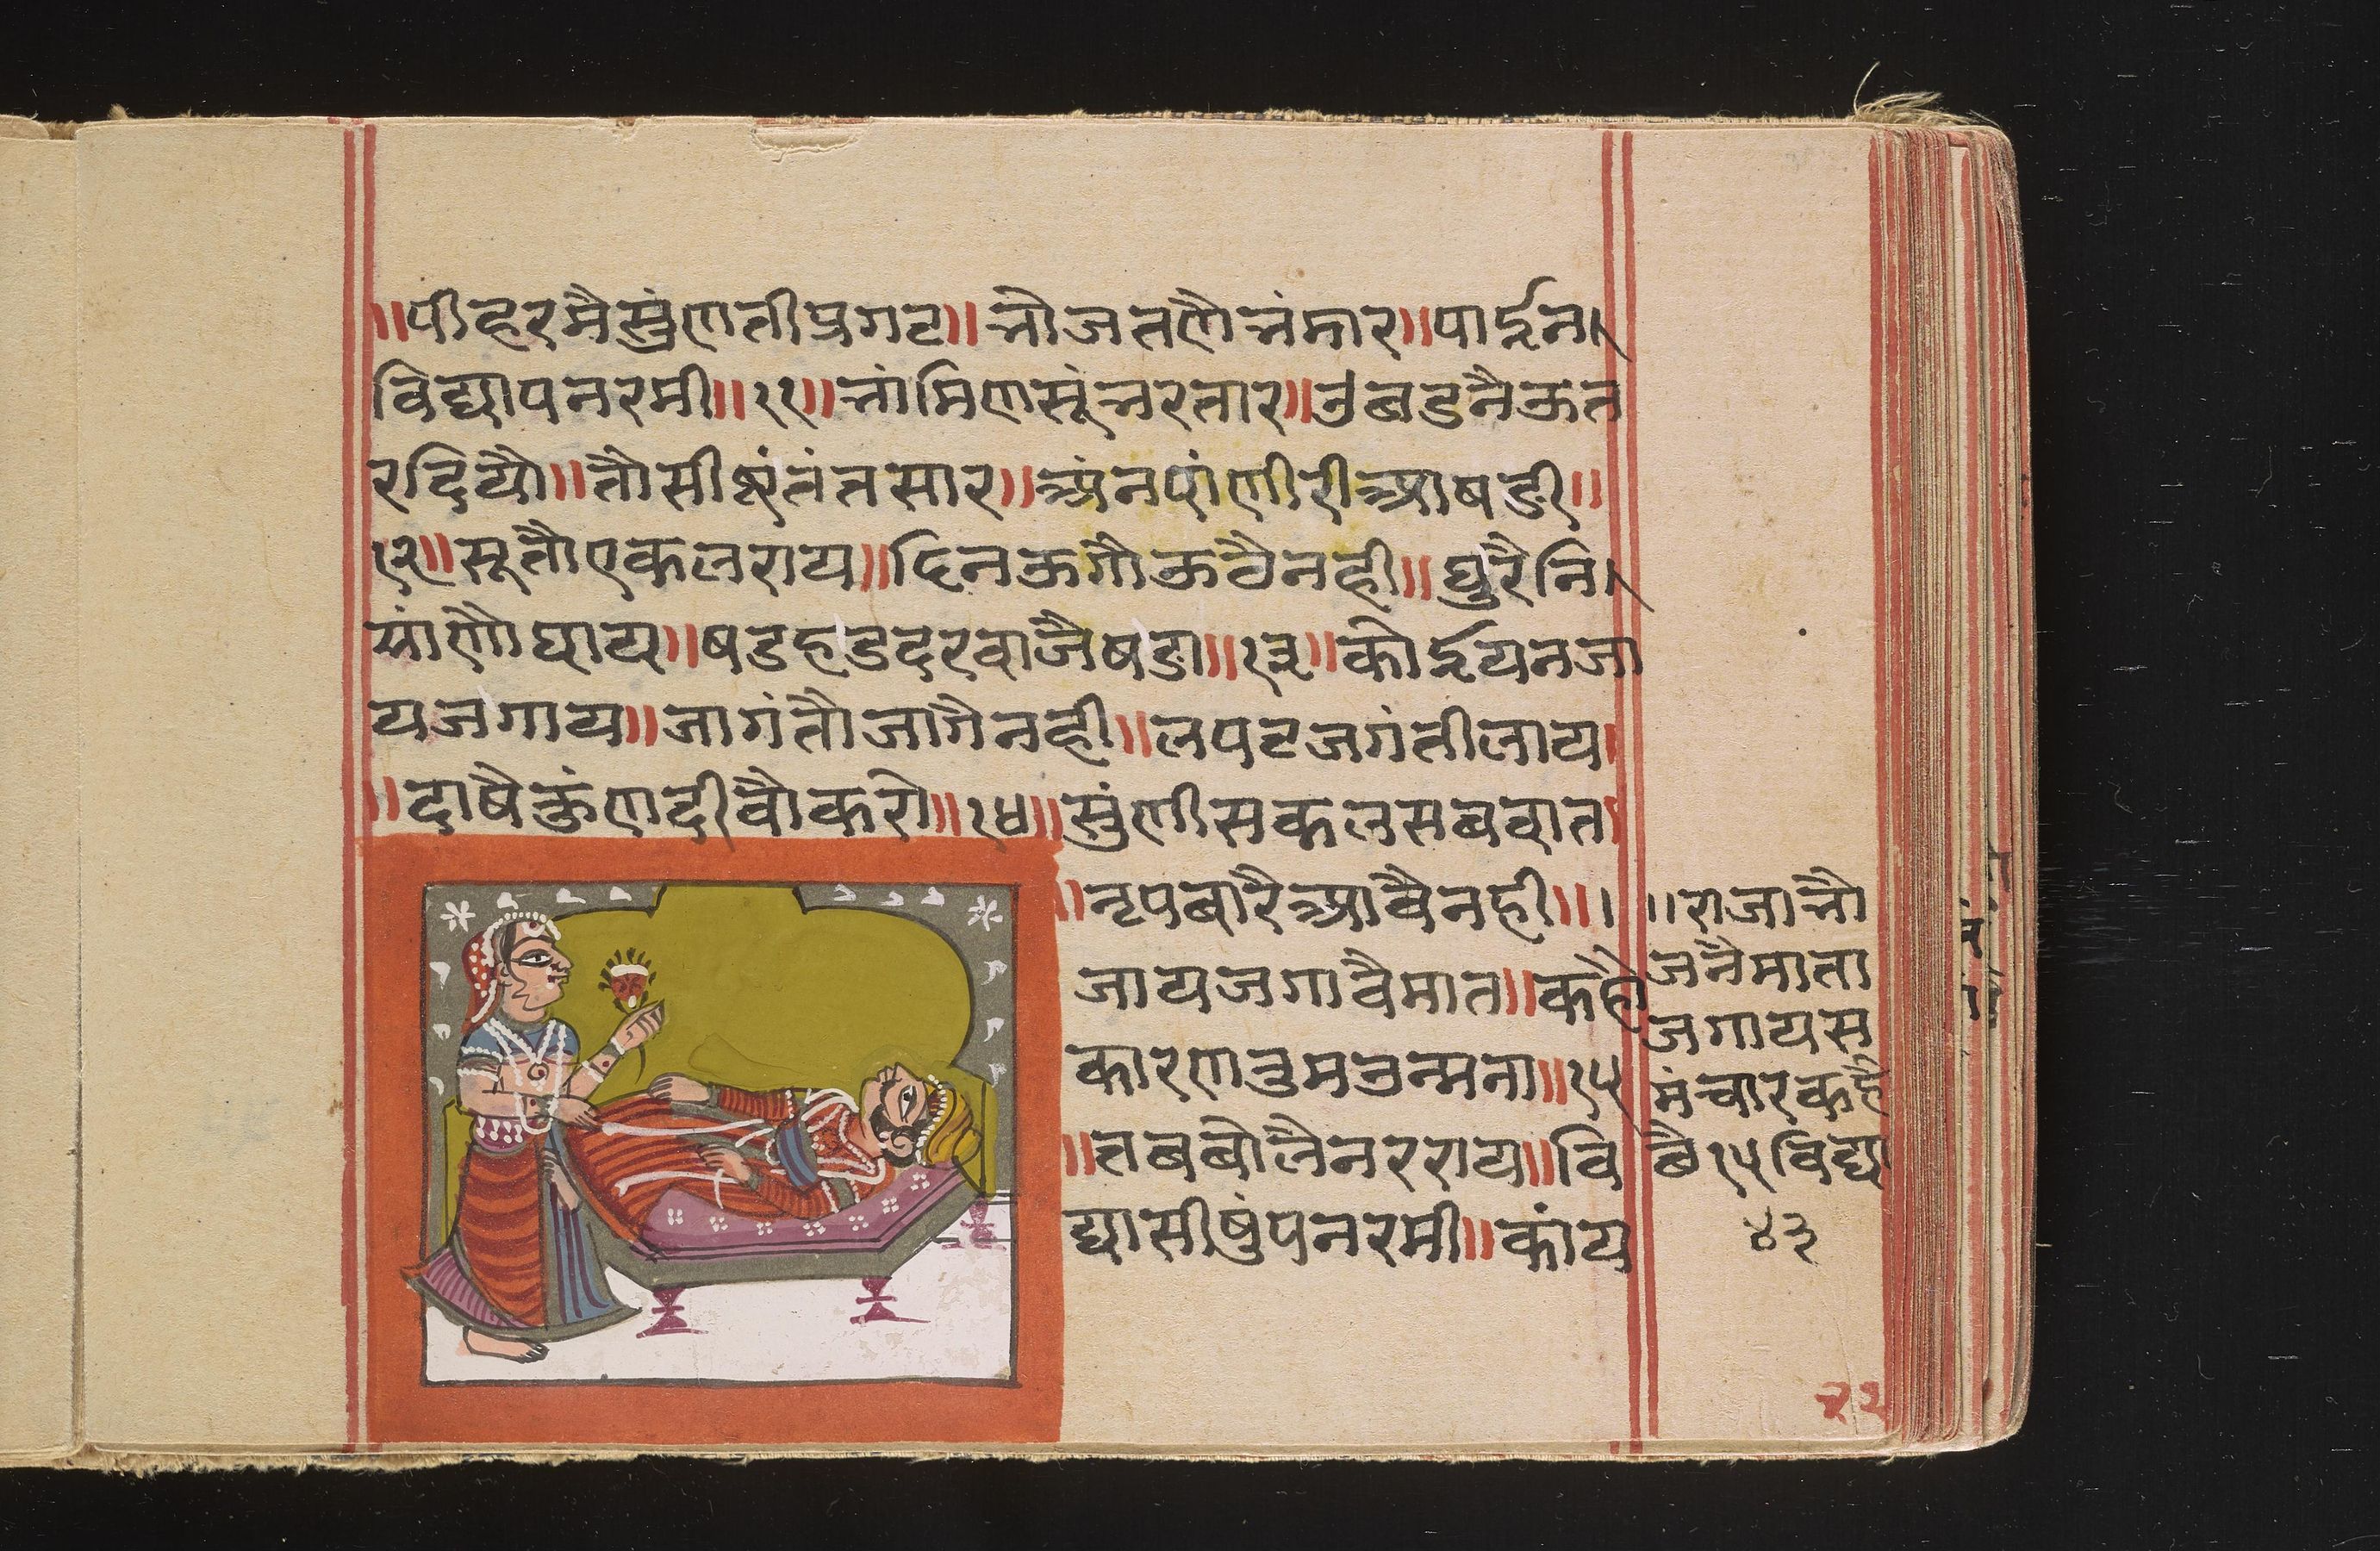 ॥पीहरमैसुंणतीप्रगट॥भोजतणैभंमार॥पाईन।
विद्यापनरमी॥११॥भांमिणसूंभरतार॥उंबडनैऊत
रदियो॥तौसीष्यंतंतसार॥अंनपांणीरीआषडी॥
१२॥सूतौएकलराय॥दिनऊगौऊठैनही॥घुरैनि।
सांणौघाय॥षडहडदरवाजैषडा॥१३॥कोईयनजा
यजगाय॥जागंतौजागैनही॥लपटजगंतीलाय
॥दाषैकुंणदीवौकरो॥१४॥सुंणीसकलसबवात
॥नृपबारैआवैनही॥।
जायजगावैमात॥कहौ
कारणतुमउन्मना॥१५
॥तबबोलैनरराय॥वि
द्यासीषुंपनरमी॥कांय
॥राजाभो
जनैमाता
जगायस
मंचारकहै
बै१५विद्या
४३
२२